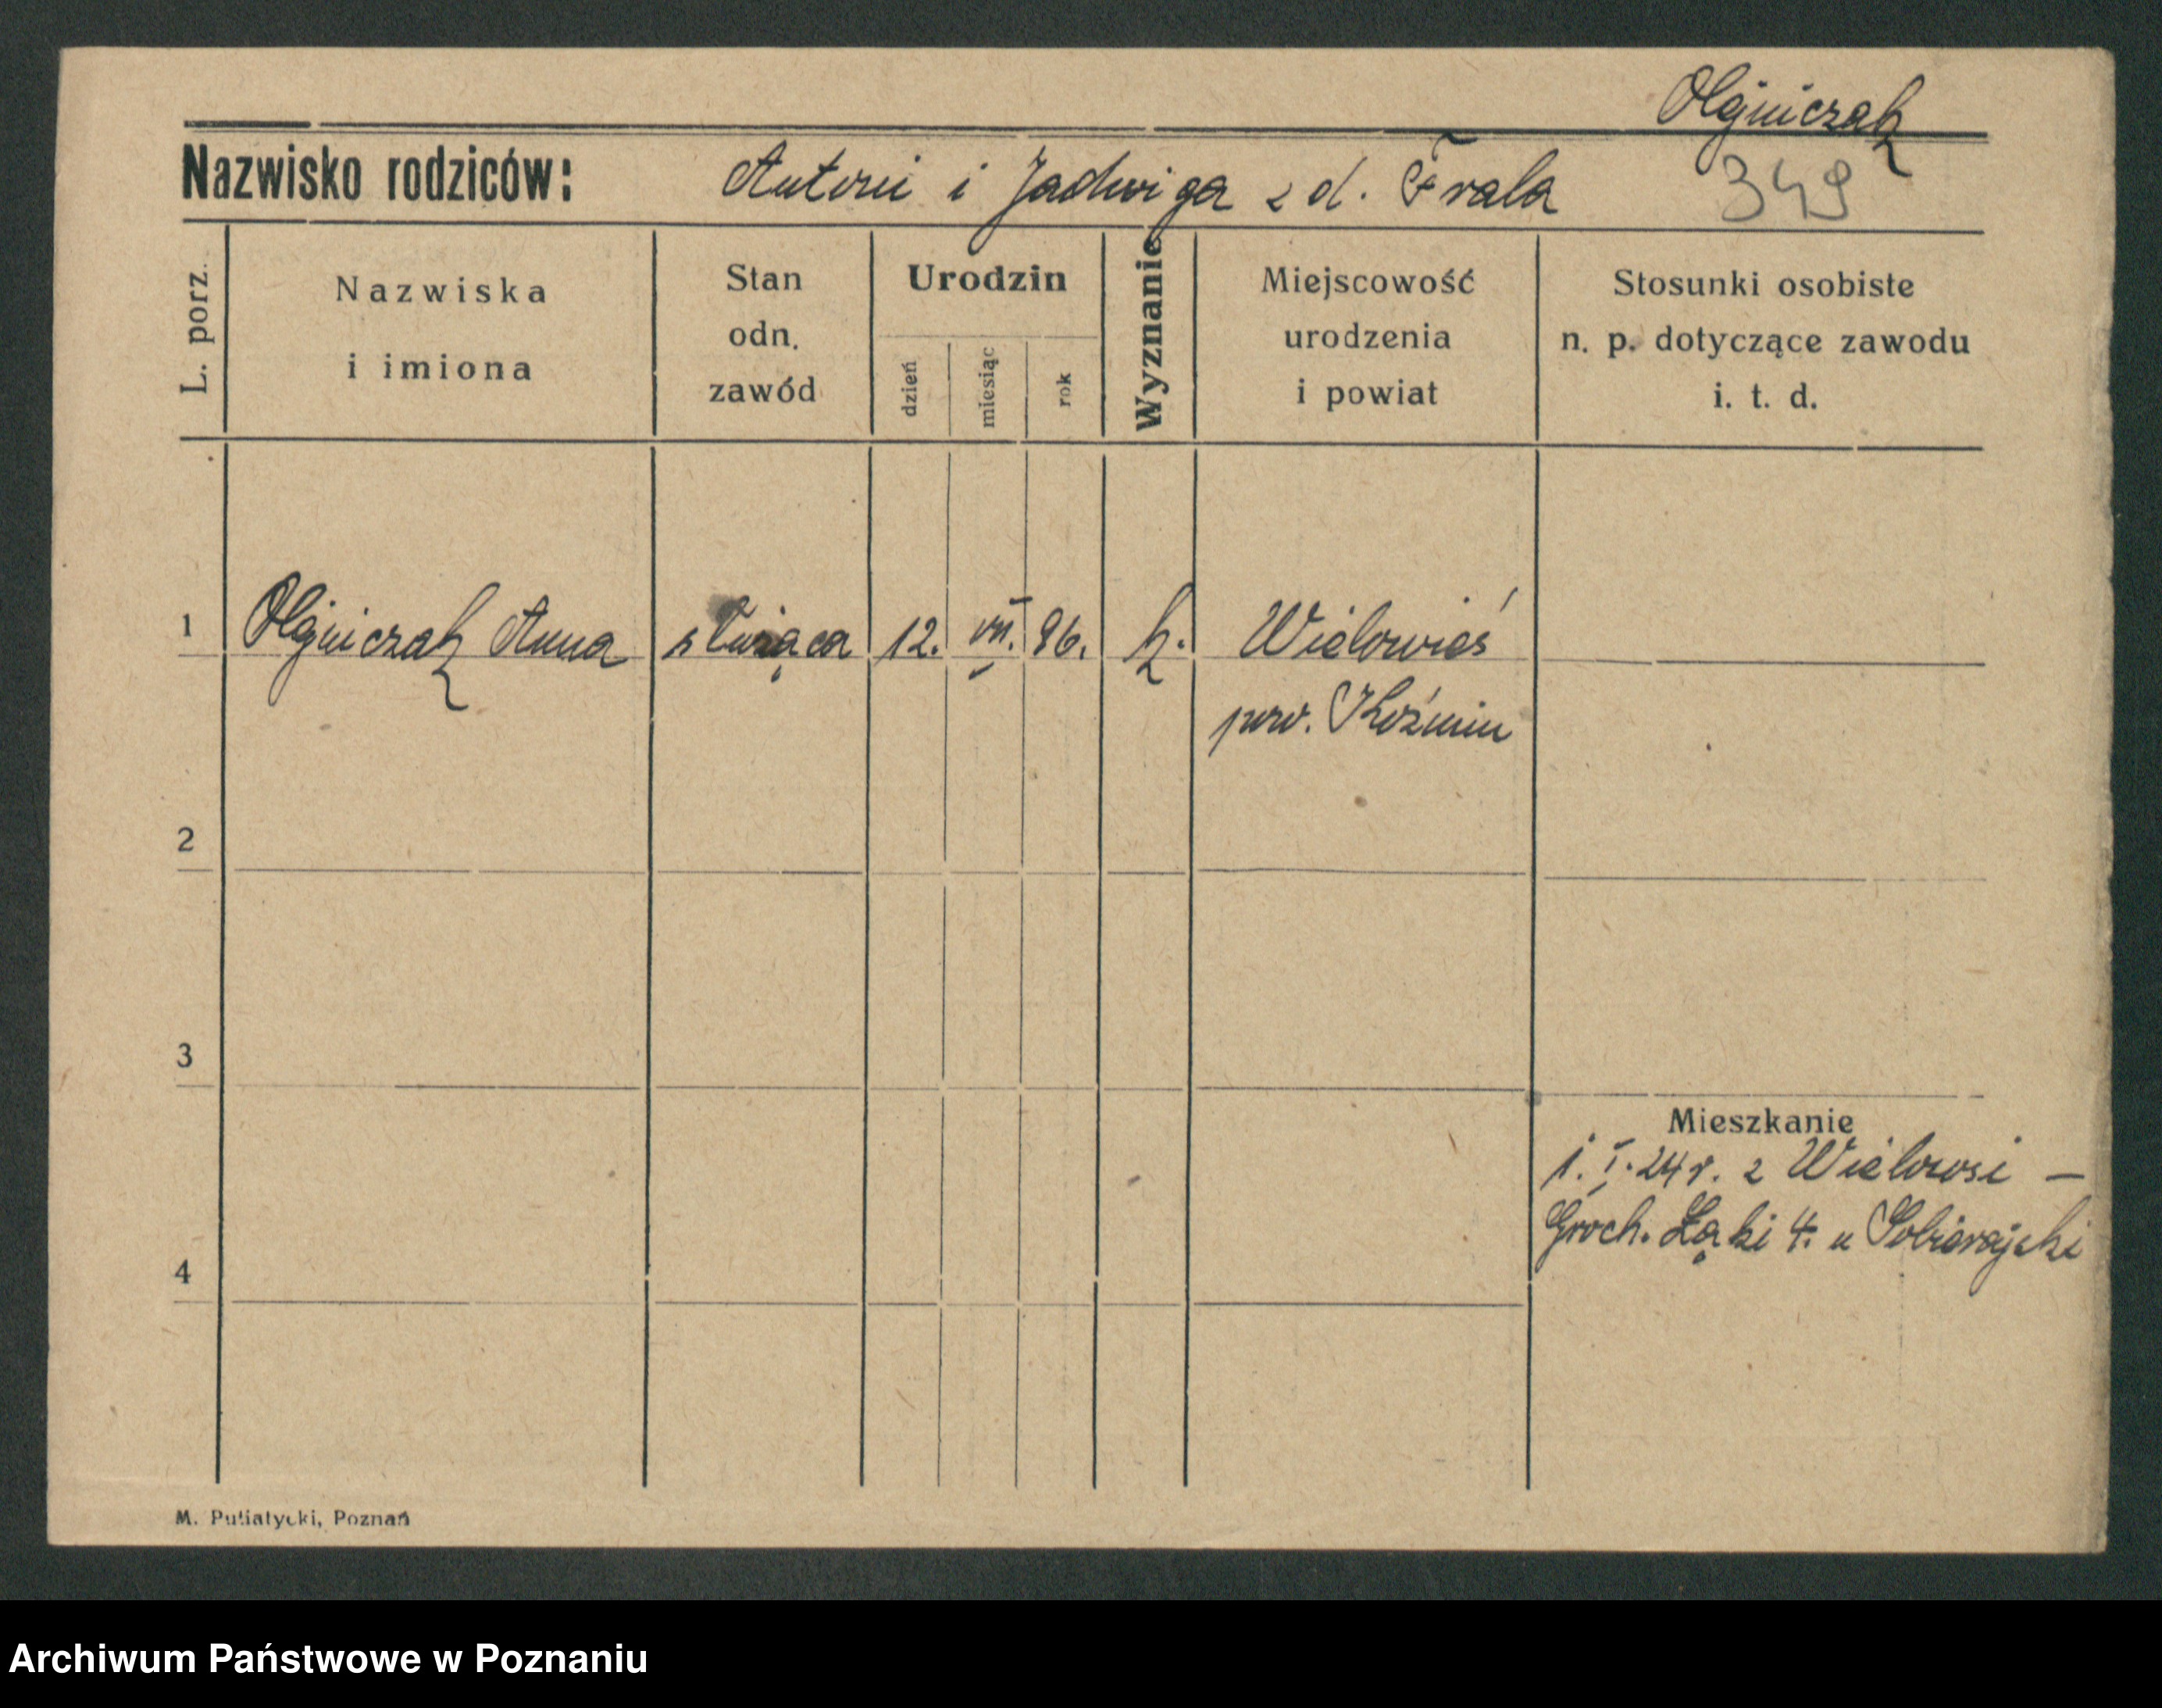 Olejniczak
Nazwisko rodziców: Antoni i Jadwiga z d. Frala
349
L. porz.
Nazwiska
i imiona
Stan
odn.
zawód
Urodzin
dzień
miesiąc
rok
Wyznanie
Miejscowość
urodzenia
i powiat
Stosunki osobiste
n. p. dotyczące zawodu
i. t. d.
1 Olejniczak Anna służąca 12. VII. 86. k. Wielowieś
pow. Koźmin
2
3
Mieszkanie
1. I. 24 r. z Wielowsi —
Groch. Łąki 4. u Sobierajski
4
M. Putiatycki, Poznań
Archiwum Państwowe w Poznaniu